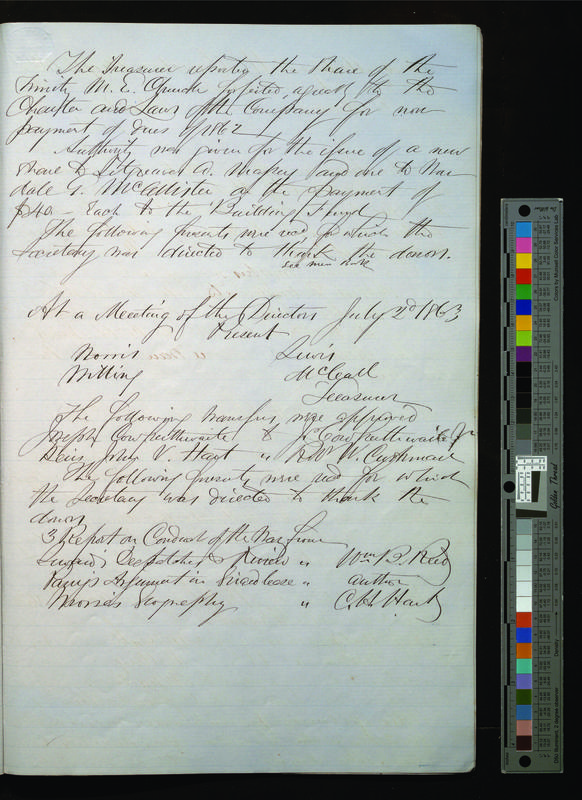 The Treasurer reported the Share of the
Trinity M. E. Church forfeited agreeably to the
Charter and Laws of the Company for non
payment of dues of 1862
Authority was given for the issue of a new
share to A. Massey and one to
dale G. McCallister on the payment of
$40 - Each to the Building Fund
The following presents were recd for which the
Secretary was directed to thank the donors.
see min book
At a Meeting of the Directors July 2d 1863
Present
Norris Lewis
Willing McCall
Treasurer
The following transfers were approved
Joseph Cowperthwaite to Cowperthwaite Jr
Heirs John V. Hart " Edw W. Cushman
The following presents were recd for which
the Secretary was directed to thank the
donors
3 Report on Conduct of the War from
Despatches " Wm B. Reed
Argument in " author
Morses Geography " C. H. Hart